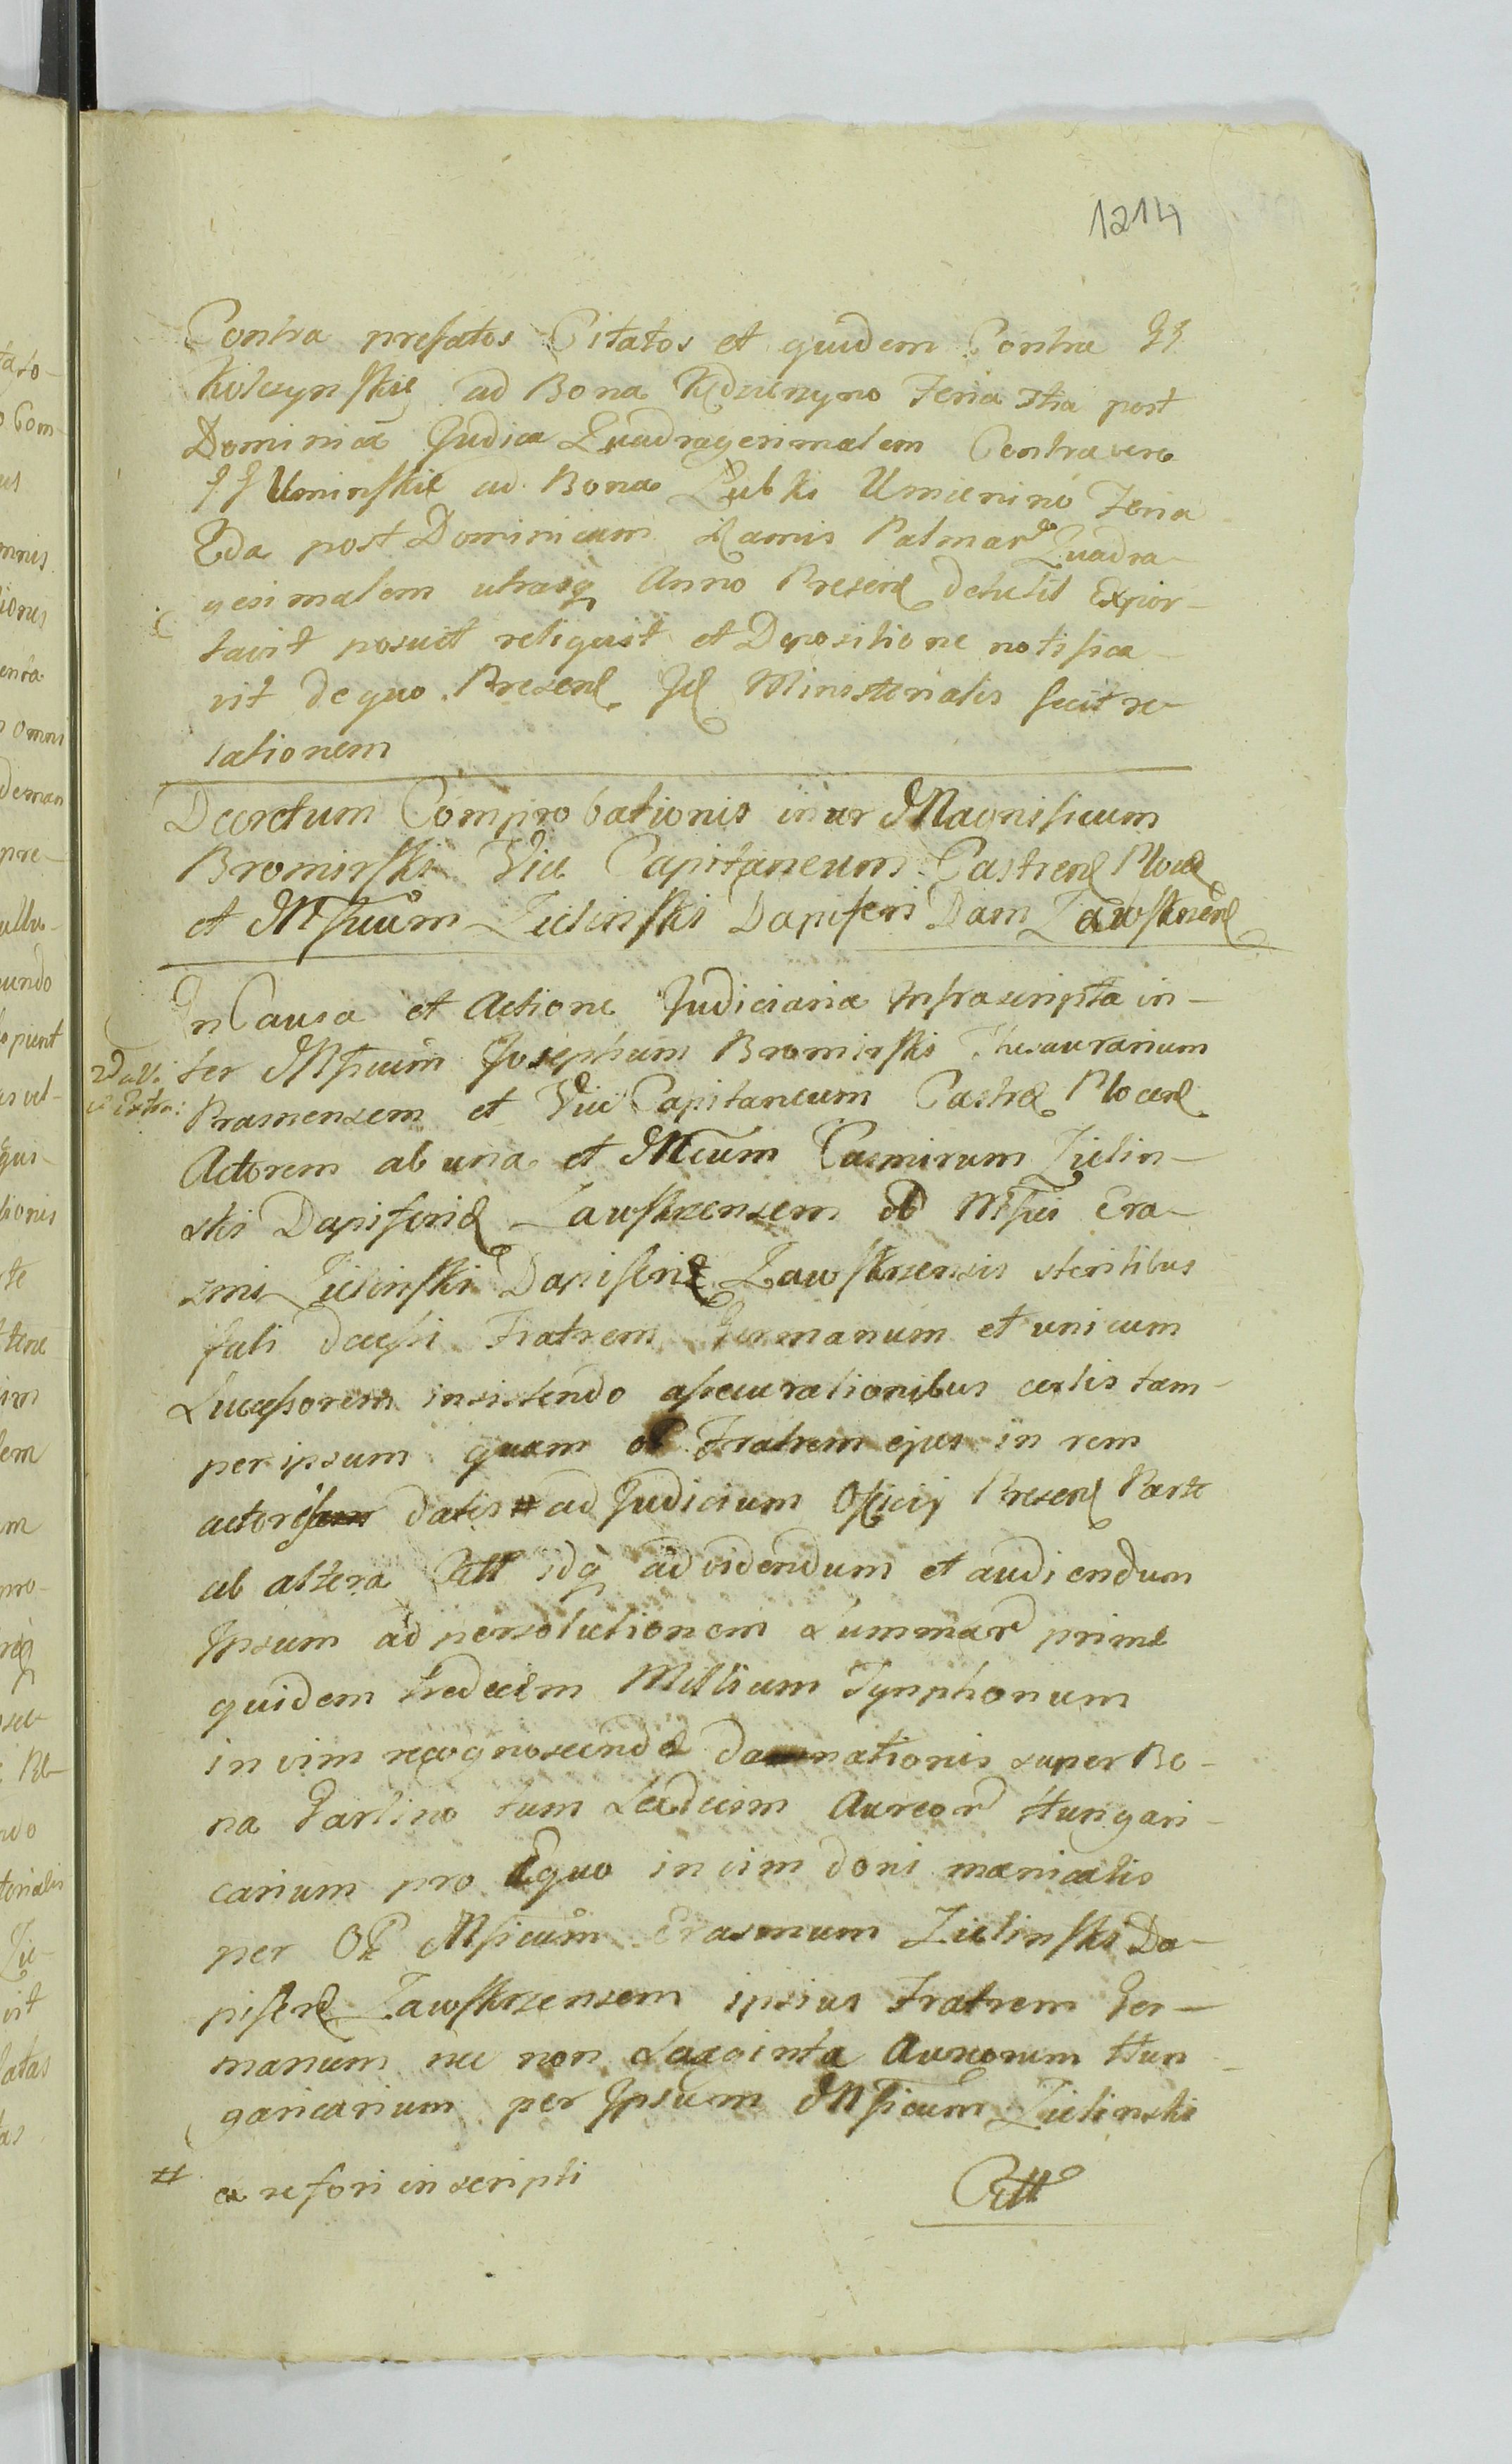 1214
Contra prefatos Citatos et quidem Contra GG
Kolczynskie ad Bona Kędzierzyno Feria 3tia post
Dominicā Judica Quadragesimalem Contra vero
GG Uminskie ad Bona Lubki Umienino Feria
2da post Dominicam Ramis Palmar Quadra-
gesimalem utrasq Anno Presen detulit Expor-
tavit posuit reliquit et Depositione notifica-
vit de quo Presens Id Ministerialis fecit re-
lationem
Decretum Comprobationis inter Magnificum
Bromirski Vice Capitaneum Castren Plocen
et Mficum Zielinski Dapiferi Dam Zawskrzen
In Causa et Actione Judiciaria Infrascripta in-
ter Mficum Josephum Bromirski Thesaurarium
Prasnensem et Vice Capitaneum Castren Plocen
Actorem ab una et Mcum Casimirum Zielin-
ski Dapiferid Zawskrzensem Mfici Era-
smi Zielinski Dapiferid Zawskrzensis sterilibus
fati decessi Fratrem Germanum et unicum
Successorem insistendo assecurationibus certis tam
per ipsum quam Fratrem ejus in rem
actoris datis # ad Judicium Officij Presen Parte
ab altera Citt idq ad videndum et audiendum
Ipsum ad persolutionem Summar prime
quidem tredecim Millium Tynphonum
in vim recognoscende donationis super Bo-
na Garlino tum Sedecim Aureor Hungari-
carium pro Equo in vim doni
per Mficum Erasmum Zielinski Da-
piferid Zawskrzensem ipsius Fratrem Ger-
manum nec non Sexaginta Aureorum Hun-
garicarium per Ipsum Mficum Zielinski
# ex re fori inscripti
Citt